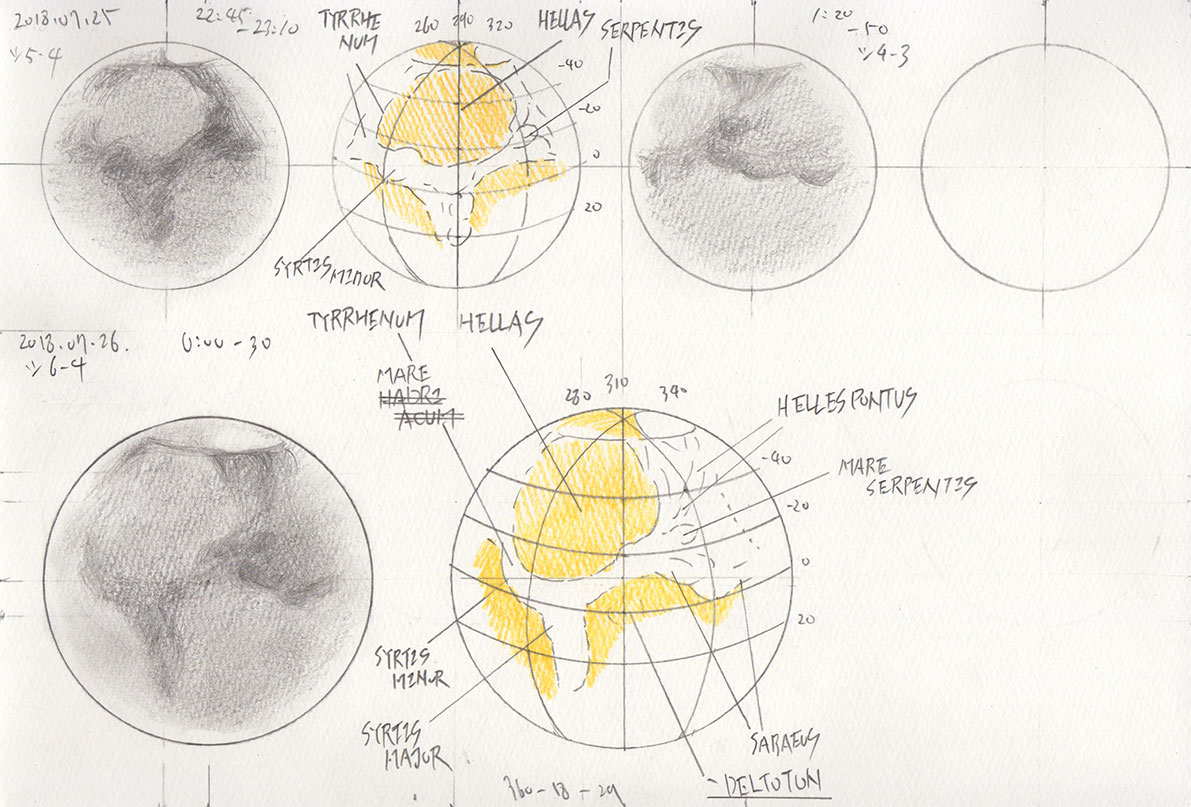 2018.07.25
22:45
-23:10
ツ5-4
TYRRHE
NUM
260 290 320
HELLAS
SERPENTIS
-40
-20
0
20
SYRTIS
MINOR
1:20
-50
ツ4-3
2018.07.26.
0:00-30
ツ6-4
TYRRHENUM
HELLAS
MARE
HADRI
ACUM
280 310 340
HELLESPONTUS
-40
MARE
SERPENTIS
-20
0
20
SYRTIS
MINOR
SYRTIS
MAJOR
SABAEUS
DELTOTON
360-18-29